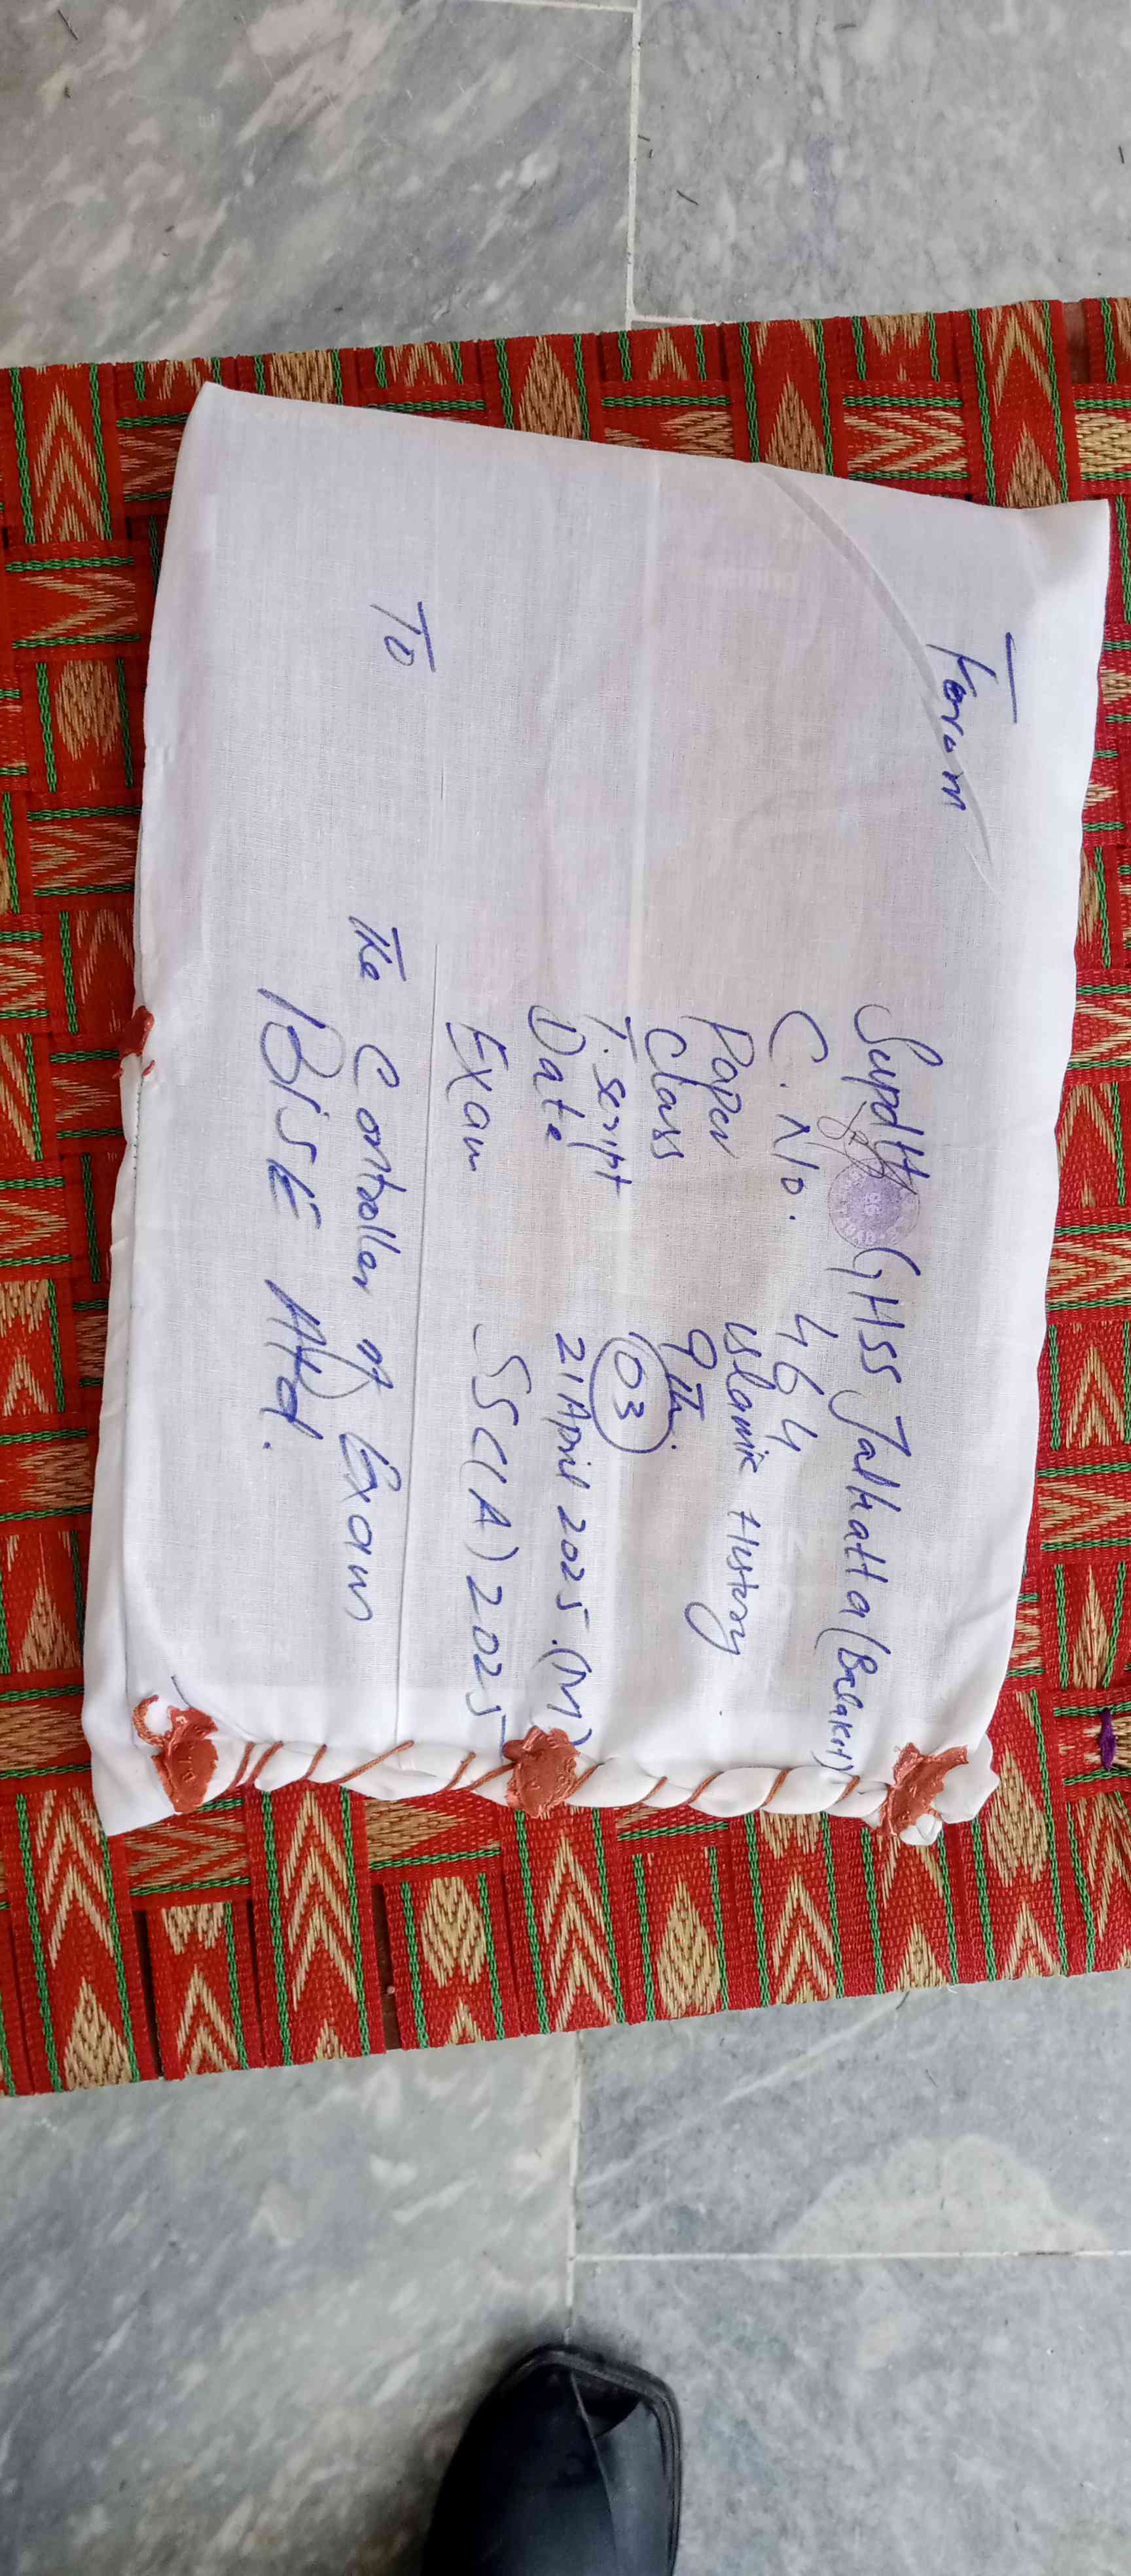 From
Supdtt GHSS Jalhatta (Balakot)
C. No. 464
Paper Islamic History
Class 9th.
T. script 03
Date 21 April 2025.(M)
Exam SSC(A) 2025
To
The Controller of Exam
BISE Atd.